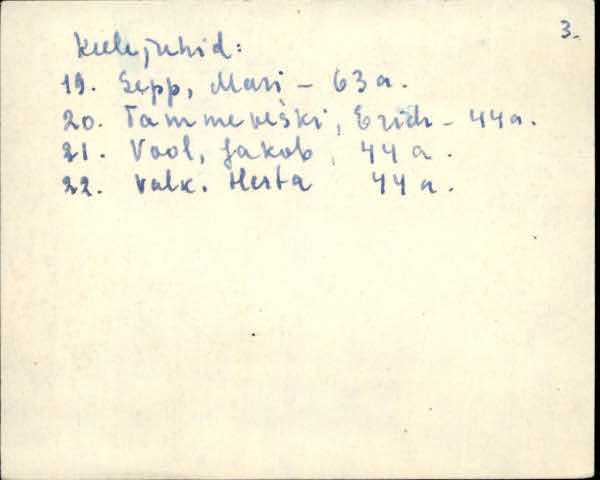 3.
Keelejuhid:
19. Sepp, Mari - 63 a.
20. Tammeveski, Erich - 44 a.
21. Vool, Jakob, 44 a.
22. Valk. Herta 44 a.